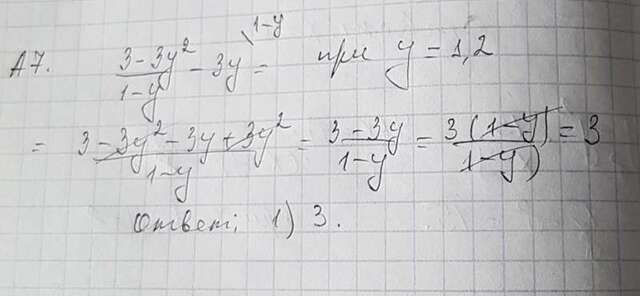 А7. (3-3y²)/(1-y) - 3y \ 1-y = при y = 1,2
= (3-3y²-3y+3y²)/(1-y) = (3-3y)/(1-y) = 3(1-y)/(1-y) = 3
Ответ: 1) 3.